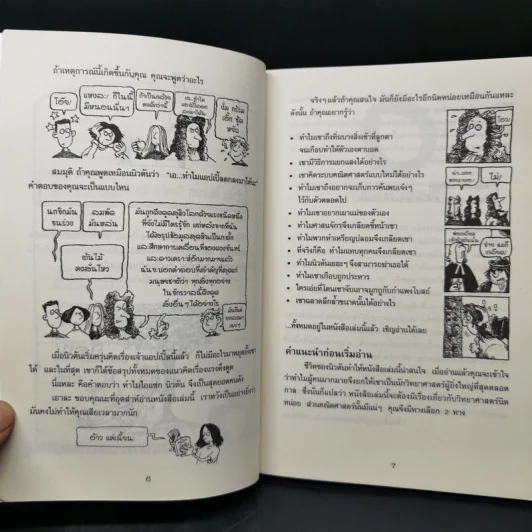 ถ้าเหตุการณ์นี้เกิดขึ้นกับคุณ คุณจะพูดว่าอะไร
โอ๊ย
แหงละ ก็ในนี้
มีหนอนนี่นา
สมมุติ ถ้าคุณพูดเหมือนนิวตันว่า "เอ...ทำไมแอปเปิ้ลตกลงมาได้นะ"
คำตอบของคุณจะเป็นแบบไหน
นกซิกมัน
ชนร่วง
ลมพัด
มันหล่น
ต้นไม้
คงสั่นไหว
เมื่อนิวตันเริ่มครุ่นคิดเรื่องเจ้าแอปเปิ้ลนี้แล้ว ก็ไม่มีอะไรมาหยุดยั้งเขา
ได้ และในที่สุด เขาก็ได้ข้อสรุปทั้งหมดของแนวคิดเรื่องแรงดึงดูด
นี่แหละ คือคำตอบว่า ทำไมไอแซก นิวตัน จึงเป็นสุดยอดคนดัง
เอาละ ขอบคุณที่อุตส่าห์อ่านหนังสือเล่มนี้ เราหวังเป็นอย่างยิ่งว่า
มันคงไม่ทำให้คุณเสียเวลามากนัก
ว้าว แค่เนี้ยน
6
จริงๆ แล้วถ้าคุณสนใจ มันก็ยังมีอะไรอีกนิดหน่อยเหมือนกันแหละ
ดังนั้น ถ้าคุณอยากรู้ว่า
• ทำไมเขาถึงทิ่มบางสิ่งเข้าที่ลูกตา
จนเกือบทำให้ตัวเองตาบอด
• เขามีวิธีการแยกแสงได้อย่างไร
• เขาคิดระบบคณิตศาสตร์แบบใหม่ได้อย่างไร
• ทำไมเขาถึงอยากจะเก็บการค้นพบเจ๋งๆ
ไว้กับตัวตลอดไป
• ทำไมเขาอยากเผาแม่ของตัวเอง
• ทำไมศาสนจักรจึงเกลียดขี้หน้าเขา
• ทำไมพวกทำเหรียญปลอมจึงเกลียดเขา
• ที่จริงก็คือ ทำไมแทบทุกคนจึงเกลียดเขา
• ทำไมนิวตันเยอะๆ จึงสามารถฆ่าเธอได้
• ทำไมเขาเกือบถูกประหาร
• ใครเอ่ยที่โดนเขาจับเอาจมูกถูกับกำแพงโบสถ์
• เขาฉลาดลึกล้ำขนาดนั้นได้อย่างไร
...ทั้งหมดอยู่ในหนังสือเล่มนี้แล้ว เชิญอ่านได้เลย
ไม่!
คำแนะนำก่อนเริ่มอ่าน
ชีวิตของนิวตันทำให้หนังสือเล่มนี้น่าสนใจ เมื่ออ่านแล้วคุณจะเข้าใจ
ว่าทำไมผู้คนมากมายจึงยกให้เขาเป็นนักวิทยาศาสตร์ผู้ยิ่งใหญ่ที่สุดตลอด
กาล ซึ่งนั่นก็แปลว่า หนังสือเล่มนี้จะต้องมีเรื่องเกี่ยวกับวิทยาศาสตร์นิด
หน่อย ส่วนคณิตศาสตร์นั้นมีแน่ๆ คุณจึงมีทางเลือก 2 ทาง
7